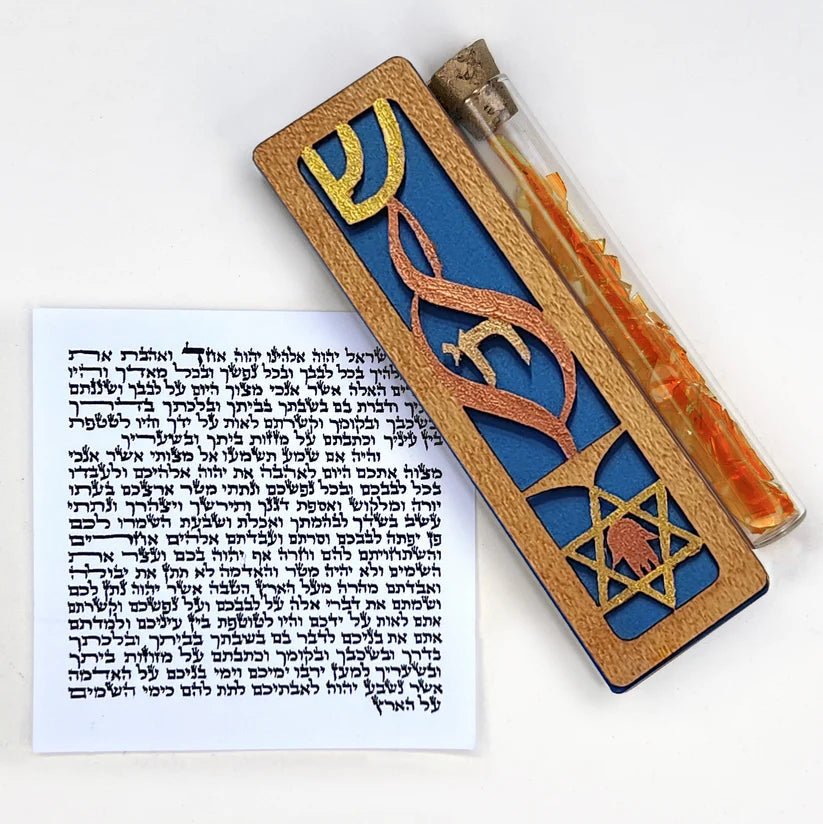 ש
חי
שראל יהוה אלהינו יהוה אחד ואהבת את
להיך בכל לבבך ובכל נפשך ובכל מאדך והיו
ים האלה אשר אנכי מצוך היום על לבבך ושננתם
יך ודברת בם בשבתך בביתך ובלכתך בדרך
ובשכבך ובקומך וקשרתם לאות על ידך והיו לטטפת
בין עיניך וכתבתם על מזזות ביתך ובשעריך
והיה אם שמע תשמעו אל מצותי אשר אנכי
מצוה אתכם היום לאהבה את יהוה אלהיכם ולעבדו
בכל לבבכם ובכל נפשכם ונתתי מטר ארצכם בעתו
יורה ומלקוש ואספת דגנך ותירשך ויצהרך ונתתי
עשב בשדך לבהמתך ואכלת ושבעת השמרו לכם
פן יפתה לבבכם וסרתם ועבדתם אלהים אחרים
והשתחויתם להם וחרה אף יהוה בכם ועצר את
השמים ולא יהיה מטר והאדמה לא תתן את יבולה
ואבדתם מהרה מעל הארץ הטבה אשר יהוה נתן לכם
ושמתם את דברי אלה על לבבכם ועל נפשכם וקשרתם
אתם לאות על ידכם והיו לטוטפת בין עיניכם ולמדתם
אתם את בניכם לדבר בם בשבתך בביתך ובלכתך
בדרך ובשכבך ובקומך וכתבתם על מזוזות ביתך
ובשעריך למען ירבו ימיכם וימי בניכם על האדמה
אשר נשבע יהוה לאבתיכם לתת להם כימי השמים
על הארץ